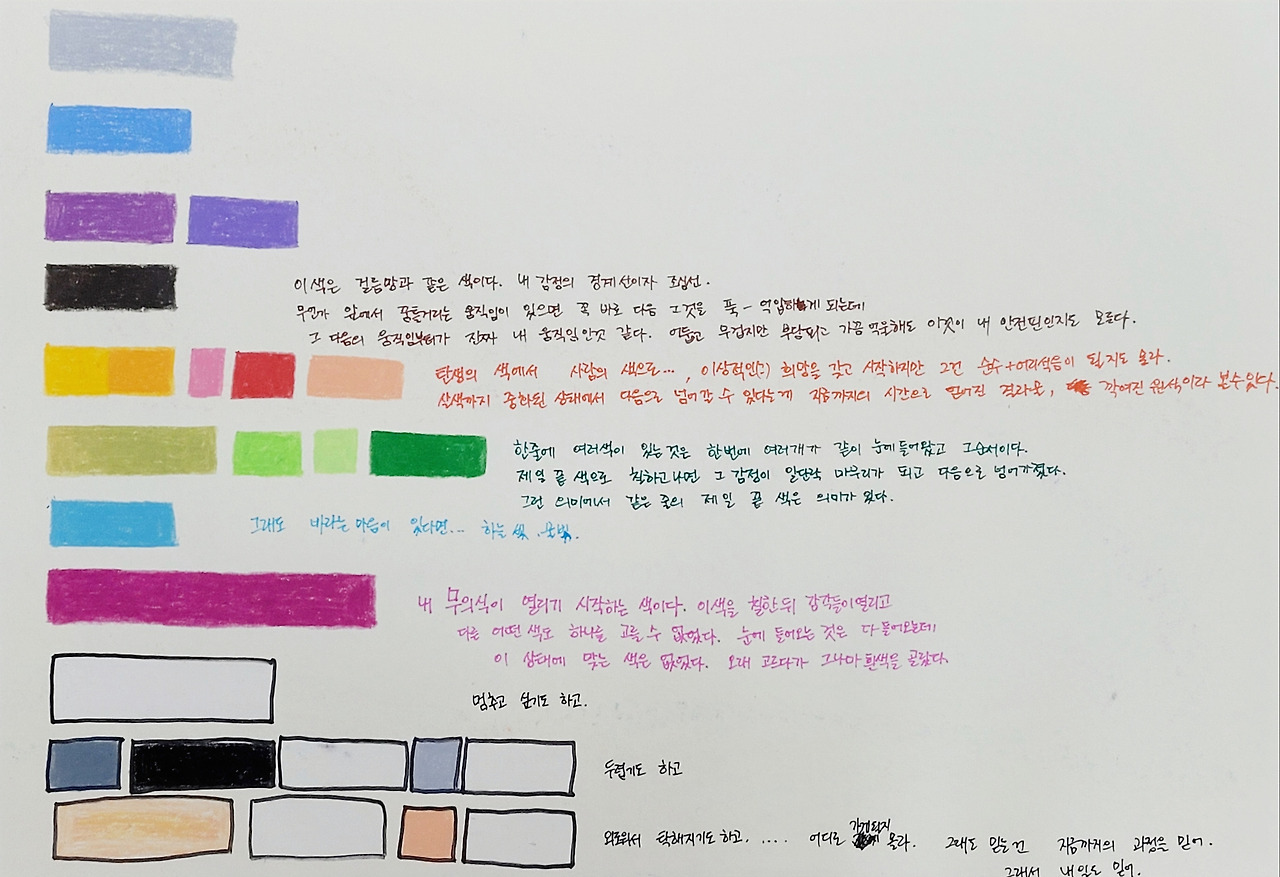 이색은 걸음망과 같은 색이다. 내 감정의 경계선이자 조심선.
무언가 안에서 꿈틀거리는 움직임이 있으면 꼭 바로 다음 그것을 푹- 억압하게 되는데
그 다음의 움직임부터가 진짜 내 움직임인것 같다. 어둡고 무겁지만 부담되고 가끔 억울해도 이것이 내 안전핀인지도 모른다.
탄생의 색에서 사람의 색으로..., 이상적인(?) 희망을 갖고 시작하지만 그건 순수+어리석음이 될지도 몰라.
살색까지 중화된 상태에서 다음으로 넘어갈 수 있다는게 지금까지의 시간으로 얻어진 결과물, 깎여진 원석이라 볼수있다.
한줄에 여러색이 있는것은 한번에 여러개가 같이 눈에들어왔고 그순서이다.
제일 끝 색으로 칠하고나면 그 감정이 일단락 마무리가 되고 다음으로 넘어가졌다.
그런 의미에서 같은 줄의 제일 끝 색은 의미가 있다.
그래도 바라는 마음이 있다면... 하늘빛, 물빛.
내 무의식이 열리기 시작하는 색이다. 이색을 칠한뒤 감각들이열리고
다른 어떤 색도 하나를 고를 수 없었다. 눈에 들어오는 것은 다 들어오는데
이 상태에 맞는 색은 없었다. 오래 고르다가 그나마 흰색을 골랐다.
멈추고 쉬기도 하고.
두렵기도 하고
외로워서 탁해지기도 하고. .... 어디로 가게될지 몰라. 그래도 믿는건 지금까지의 과정을 믿어.
그래서 내일도 믿어.